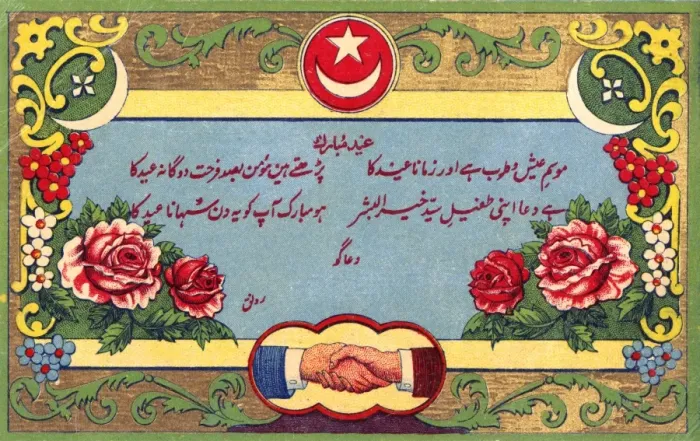 عید مبارک
موسمِ عیش و طرب ہے اور زمانا عید کا پڑھتے ہین مؤمن بصد فرحت دوگانہ عید کا
ہے دعا اپنی طفیلِ سیّد خیر البشر ہو مبارک آپ کو یہ دن سُہانا عید کا
دعا گو